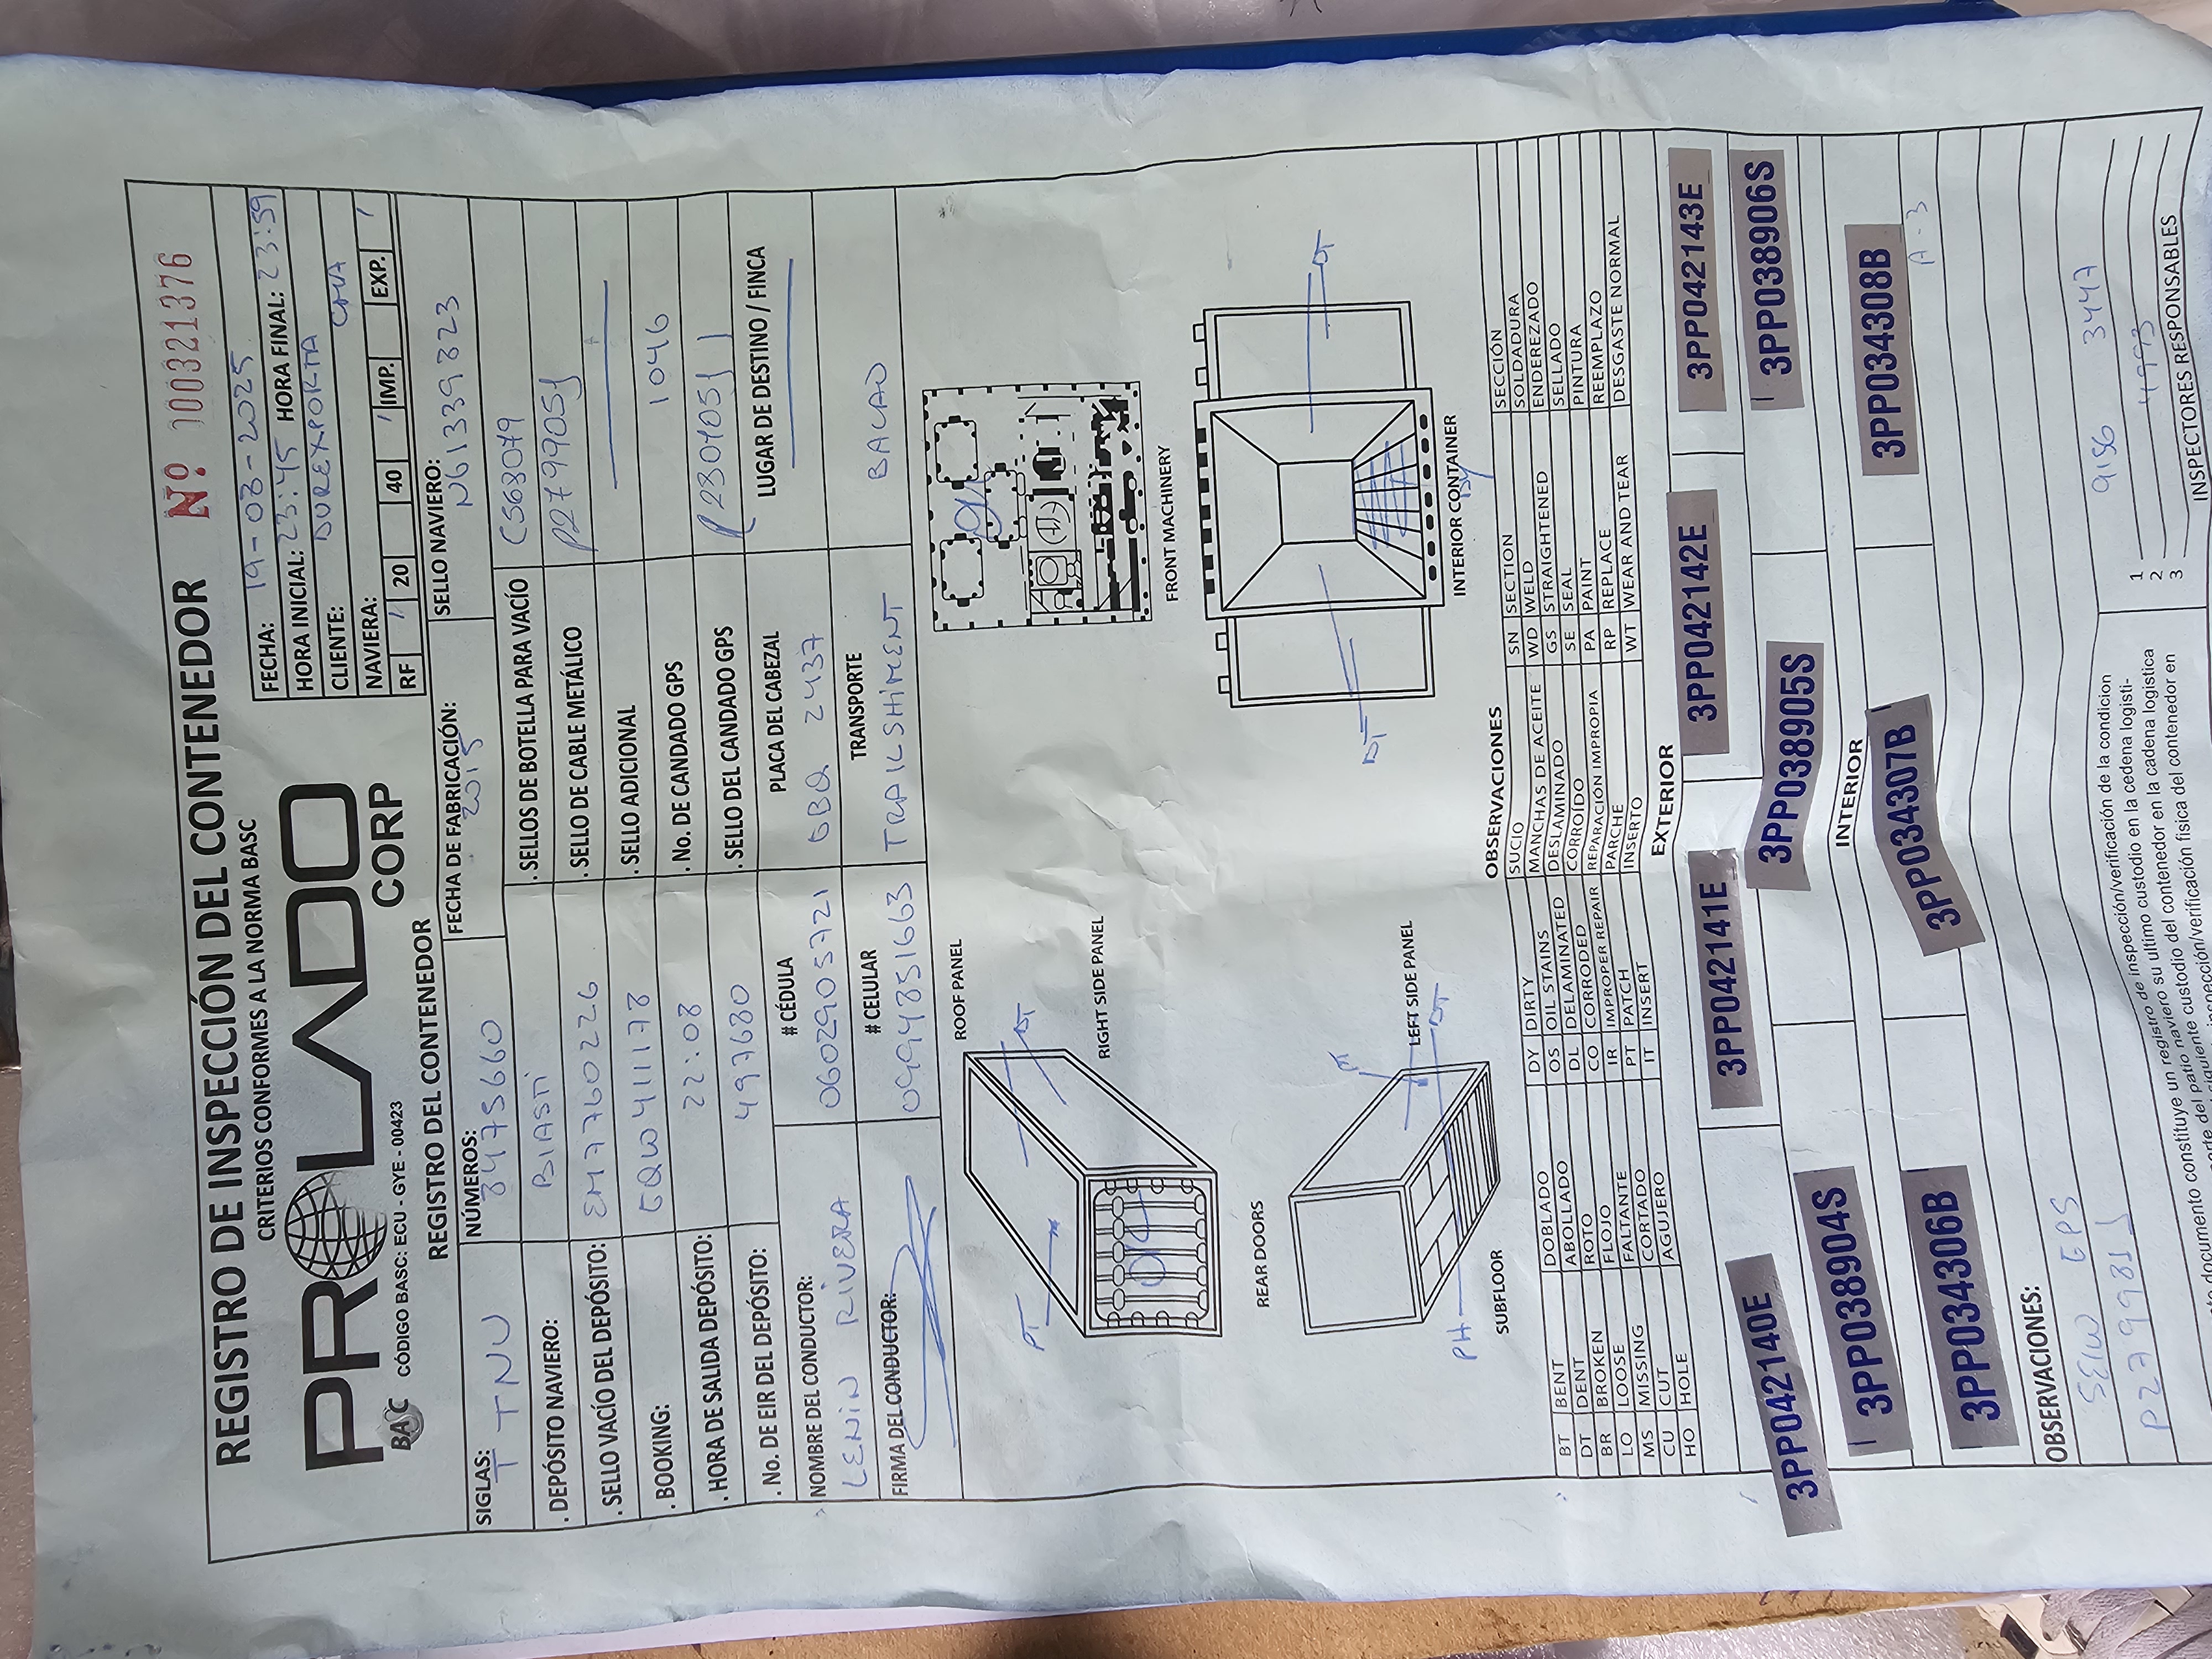 REGISTRO DE INSPECCIÓN DEL CONTENEDOR Nº 000321376
CRITERIOS CONFORMES A LA NORMA BASC
PROLADO
CORP
BASC CÓDIGO BASC: ECU - GYE - 00423
FECHA: 19-08-2025
HORA INICIAL: 23:45 HORA FINAL: 23:59
CLIENTE: DUREXPORTA
NAVIERA: CMA
RF / 20 40 / IMP. EXP. /
REGISTRO DEL CONTENEDOR
SIGLAS: TTNU NÚMEROS: 8475660 FECHA DE FABRICACIÓN: 2015 SELLO NAVIERO: N61339823
. DEPÓSITO NAVIERO: . SELLOS DE BOTELLA PARA VACÍO CS68079
. SELLO VACÍO DEL DEPÓSITO: EM7760226 . SELLO DE CABLE METÁLICO P279905J
. BOOKING: GQW411178 . SELLO ADICIONAL
. HORA DE SALIDA DEPÓSITO: 22:08 . No. DE CANDADO GPS 1046
. No. DE EIR DEL DEPÓSITO: 497680 . SELLO DEL CANDADO GPS
NOMBRE DEL CONDUCTOR: LENIN RIVERA # CÉDULA 0602905721 PLACA DEL CABEZAL GBQ 2437 LUGAR DE DESTINO / FINCA
FIRMA DEL CONDUCTOR: # CELULAR 0994851663 TRANSPORTE TRAILSHIMENT BALAO
ROOF PANEL
PT
DT
RIGHT SIDE PANEL
FRONT MACHINERY
REAR DOORS
PT
DT
DT
LEFT SIDE PANEL
DT
PH
SUBFLOOR
INTERIOR CONTAINER
DY
OBSERVACIONES
BT BENT DOBLADO DY DIRTY SUCIO SN SECTION SECCIÓN
DT DENT ABOLLADO OS OIL STAINS MANCHAS DE ACEITE WD WELD SOLDADURA
BR BROKEN ROTO DL DELAMINATED DESLAMINADO GS STRAIGHTENED ENDEREZADO
LO LOOSE FLOJO CO CORRODED CORROÍDO SE SEAL SELLADO
MS MISSING FALTANTE IR IMPROPER REPAIR REPARACIÓN IMPROPIA PA PAINT PINTURA
CU CUT CORTADO PT PATCH PARCHE RP REPLACE REEMPLAZO
HO HOLE AGUJERO IT INSERT INSERTO WT WEAR AND TEAR DESGASTE NORMAL
EXTERIOR
3PP042140E 3PP042141E 3PP042142E 3PP042143E
3PP038904S 3PP038905S 3PP038906S
INTERIOR
3PP034306B 3PP034307B 3PP034308B
A-3
OBSERVACIONES:
EPS
P279981J
documento constituye un registro de inspección/verificación de la condicion
del patio naviero su ultimo custodio en la cedena logisti-
siguiente custodio del contenedor en la cadena logistica
inspección/verificación fisica del contenedor en
9156 3447
1
2 4993
3
INSPECTORES RESPONSABLES